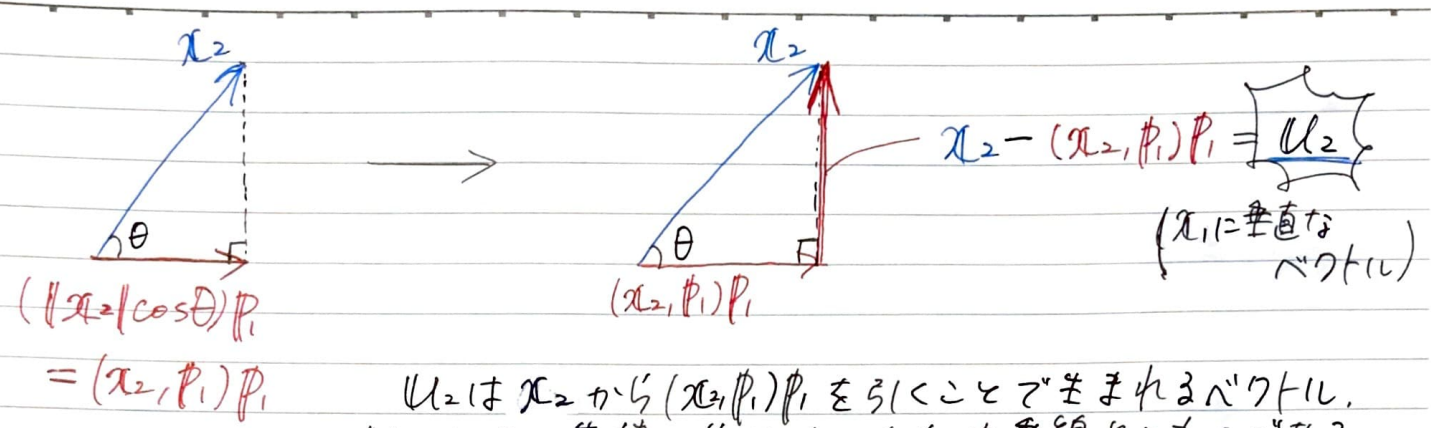 x₂
θ
(‖x₂‖cosθ)p₁
= (x₂, p₁)p₁
x₂
θ
(x₂, p₁)p₁
x₂ − (x₂, p₁)p₁ = u₂
(x₁に垂直な
ベクトル)
u₂は x₂ から (x₂, p₁)p₁ を引くことで生まれるベクトル.